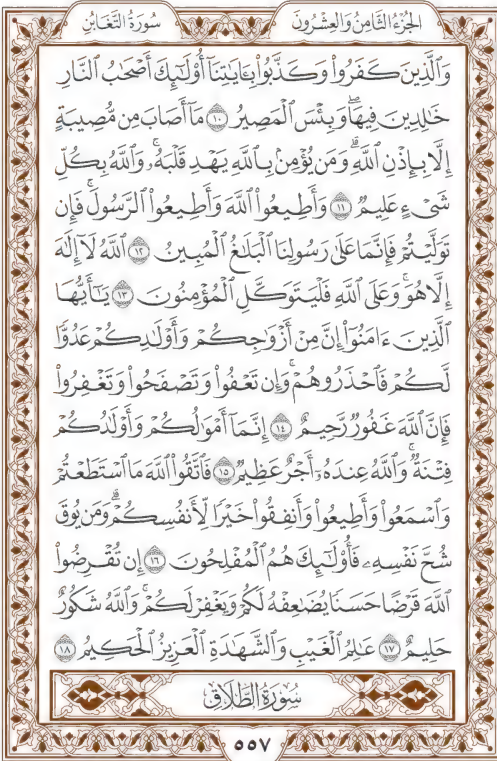 سُورَةُ التَّغَابُنِ
الجُزْءُ الثَّامِنُ وَالعِشْرُونَ
وَٱلَّذِينَ كَفَرُواْ وَكَذَّبُواْ بِـَٔايَٰتِنَآ أُوْلَٰٓئِكَ أَصْحَٰبُ ٱلنَّارِ
خَٰلِدِينَ فِيهَاۖ وَبِئْسَ ٱلْمَصِيرُ ١٠ مَآ أَصَابَ مِن مُّصِيبَةٍ
إِلَّا بِإِذْنِ ٱللَّهِۗ وَمَن يُؤْمِنۢ بِٱللَّهِ يَهْدِ قَلْبَهُۥۚ وَٱللَّهُ بِكُلِّ
شَىْءٍ عَلِيمٌ ١١ وَأَطِيعُواْ ٱللَّهَ وَأَطِيعُواْ ٱلرَّسُولَۚ فَإِن
تَوَلَّيْتُمْ فَإِنَّمَا عَلَىٰ رَسُولِنَا ٱلْبَلَٰغُ ٱلْمُبِينُ ١٢ ٱللَّهُ لَآ إِلَٰهَ
إِلَّا هُوَۚ وَعَلَى ٱللَّهِ فَلْيَتَوَكَّلِ ٱلْمُؤْمِنُونَ ١٣ يَٰٓأَيُّهَا
ٱلَّذِينَ ءَامَنُوٓاْ إِنَّ مِنْ أَزْوَٰجِكُمْ وَأَوْلَٰدِكُمْ عَدُوًّا
لَّكُمْ فَٱحْذَرُوهُمْۚ وَإِن تَعْفُواْ وَتَصْفَحُواْ وَتَغْفِرُواْ
فَإِنَّ ٱللَّهَ غَفُورٌ رَّحِيمٌ ١٤ إِنَّمَآ أَمْوَٰلُكُمْ وَأَوْلَٰدُكُمْ
فِتْنَةٌۚ وَٱللَّهُ عِندَهُۥٓ أَجْرٌ عَظِيمٌ ١٥ فَٱتَّقُواْ ٱللَّهَ مَا ٱسْتَطَعْتُمْ
وَٱسْمَعُواْ وَأَطِيعُواْ وَأَنفِقُواْ خَيْرًا لِّأَنفُسِكُمْۗ وَمَن يُوقَ
شُحَّ نَفْسِهِۦ فَأُوْلَٰٓئِكَ هُمُ ٱلْمُفْلِحُونَ ١٦ إِن تُقْرِضُواْ
ٱللَّهَ قَرْضًا حَسَنًا يُضَٰعِفْهُ لَكُمْ وَيَغْفِرْ لَكُمْۚ وَٱللَّهُ شَكُورٌ
حَلِيمٌ ١٧ عَٰلِمُ ٱلْغَيْبِ وَٱلشَّهَٰدَةِ ٱلْعَزِيزُ ٱلْحَكِيمُ ١٨
سُورَةُ الطَّلَاقِ
٥٥٧